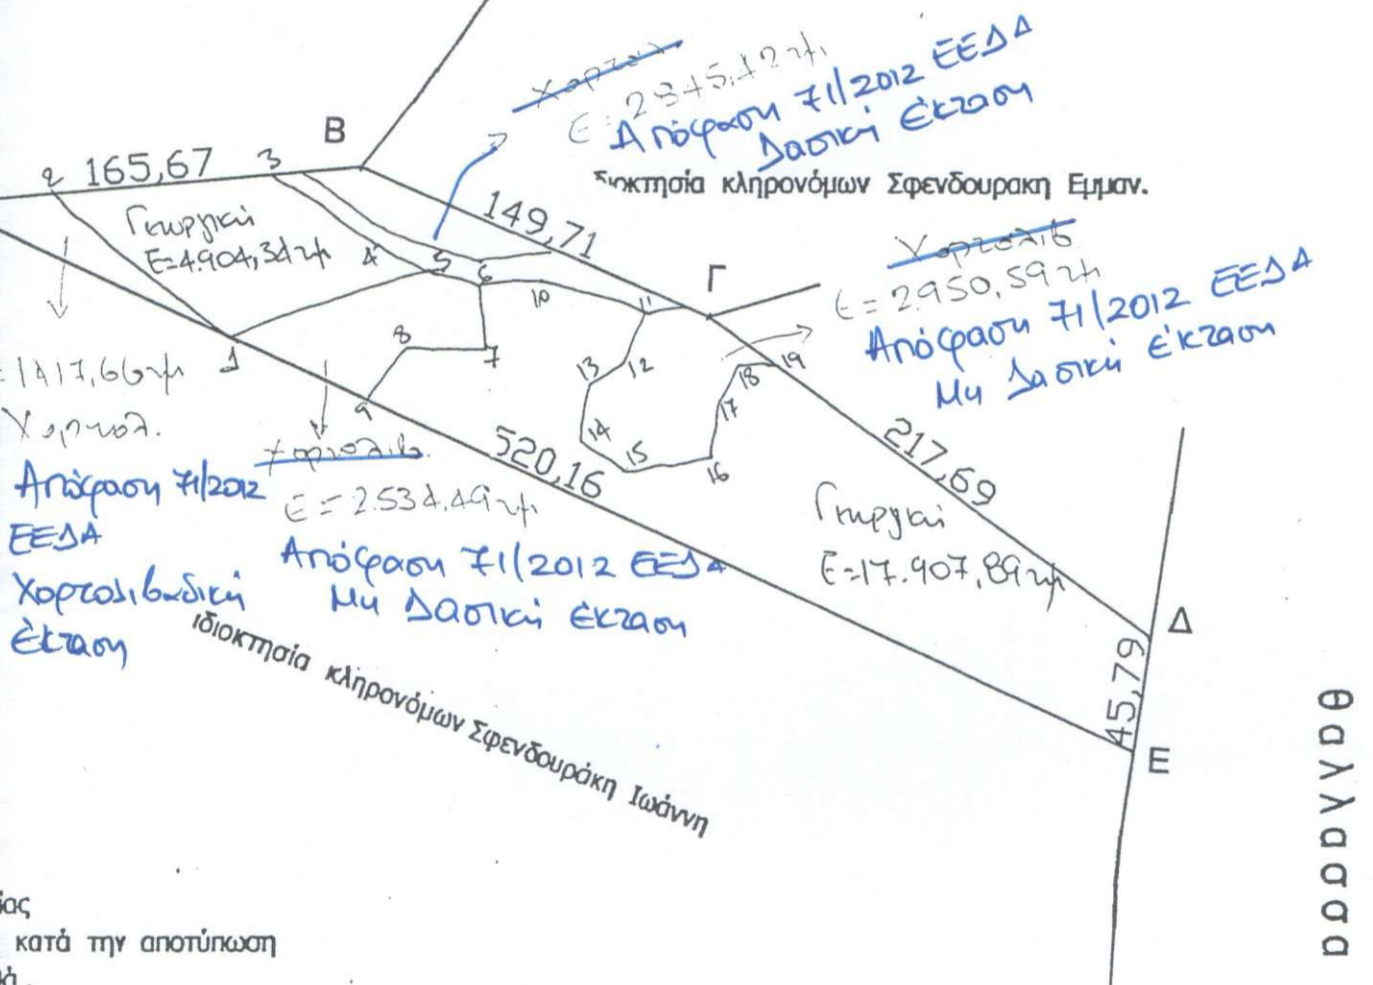 Χορτολ
Ε = 2845,42 τμ.
Απόφαση 71/2012 ΕΕΔΑ
Δασική έκταση
Β
ιδιοκτησία κληρονόμων Σφενδουρακη Εμμαν.
2 165,67 3
Γεωργική
Ε=4.904,34τμ
149,71
4 5 6
10
11
Γ
Χορτολιβ
Ε = 2.950,59 τμ
Απόφαση 71/2012 ΕΕΔΑ
Μη Δασική έκταση
1
8
7
9
13
12
14
15
16
17
18
19
1417,66τμ
Χορτολ.
Απόφαση 71/2012
ΕΕΔΑ
Χορτολιβαδική
έκταση
Χορτολιβ.
Ε = 2.534,49 τμ
Απόφαση 71/2012 ΕΕΔΑ
Μη Δασική έκταση
520,16
217,69
Γεωργική
Ε=17.907,89τμ
Δ
45,79
Ε
ιδιοκτησία κληρονόμων Σφενδουράκη Ιωάννη
θαλλασσα
ίας
κατά την αποτύπωση